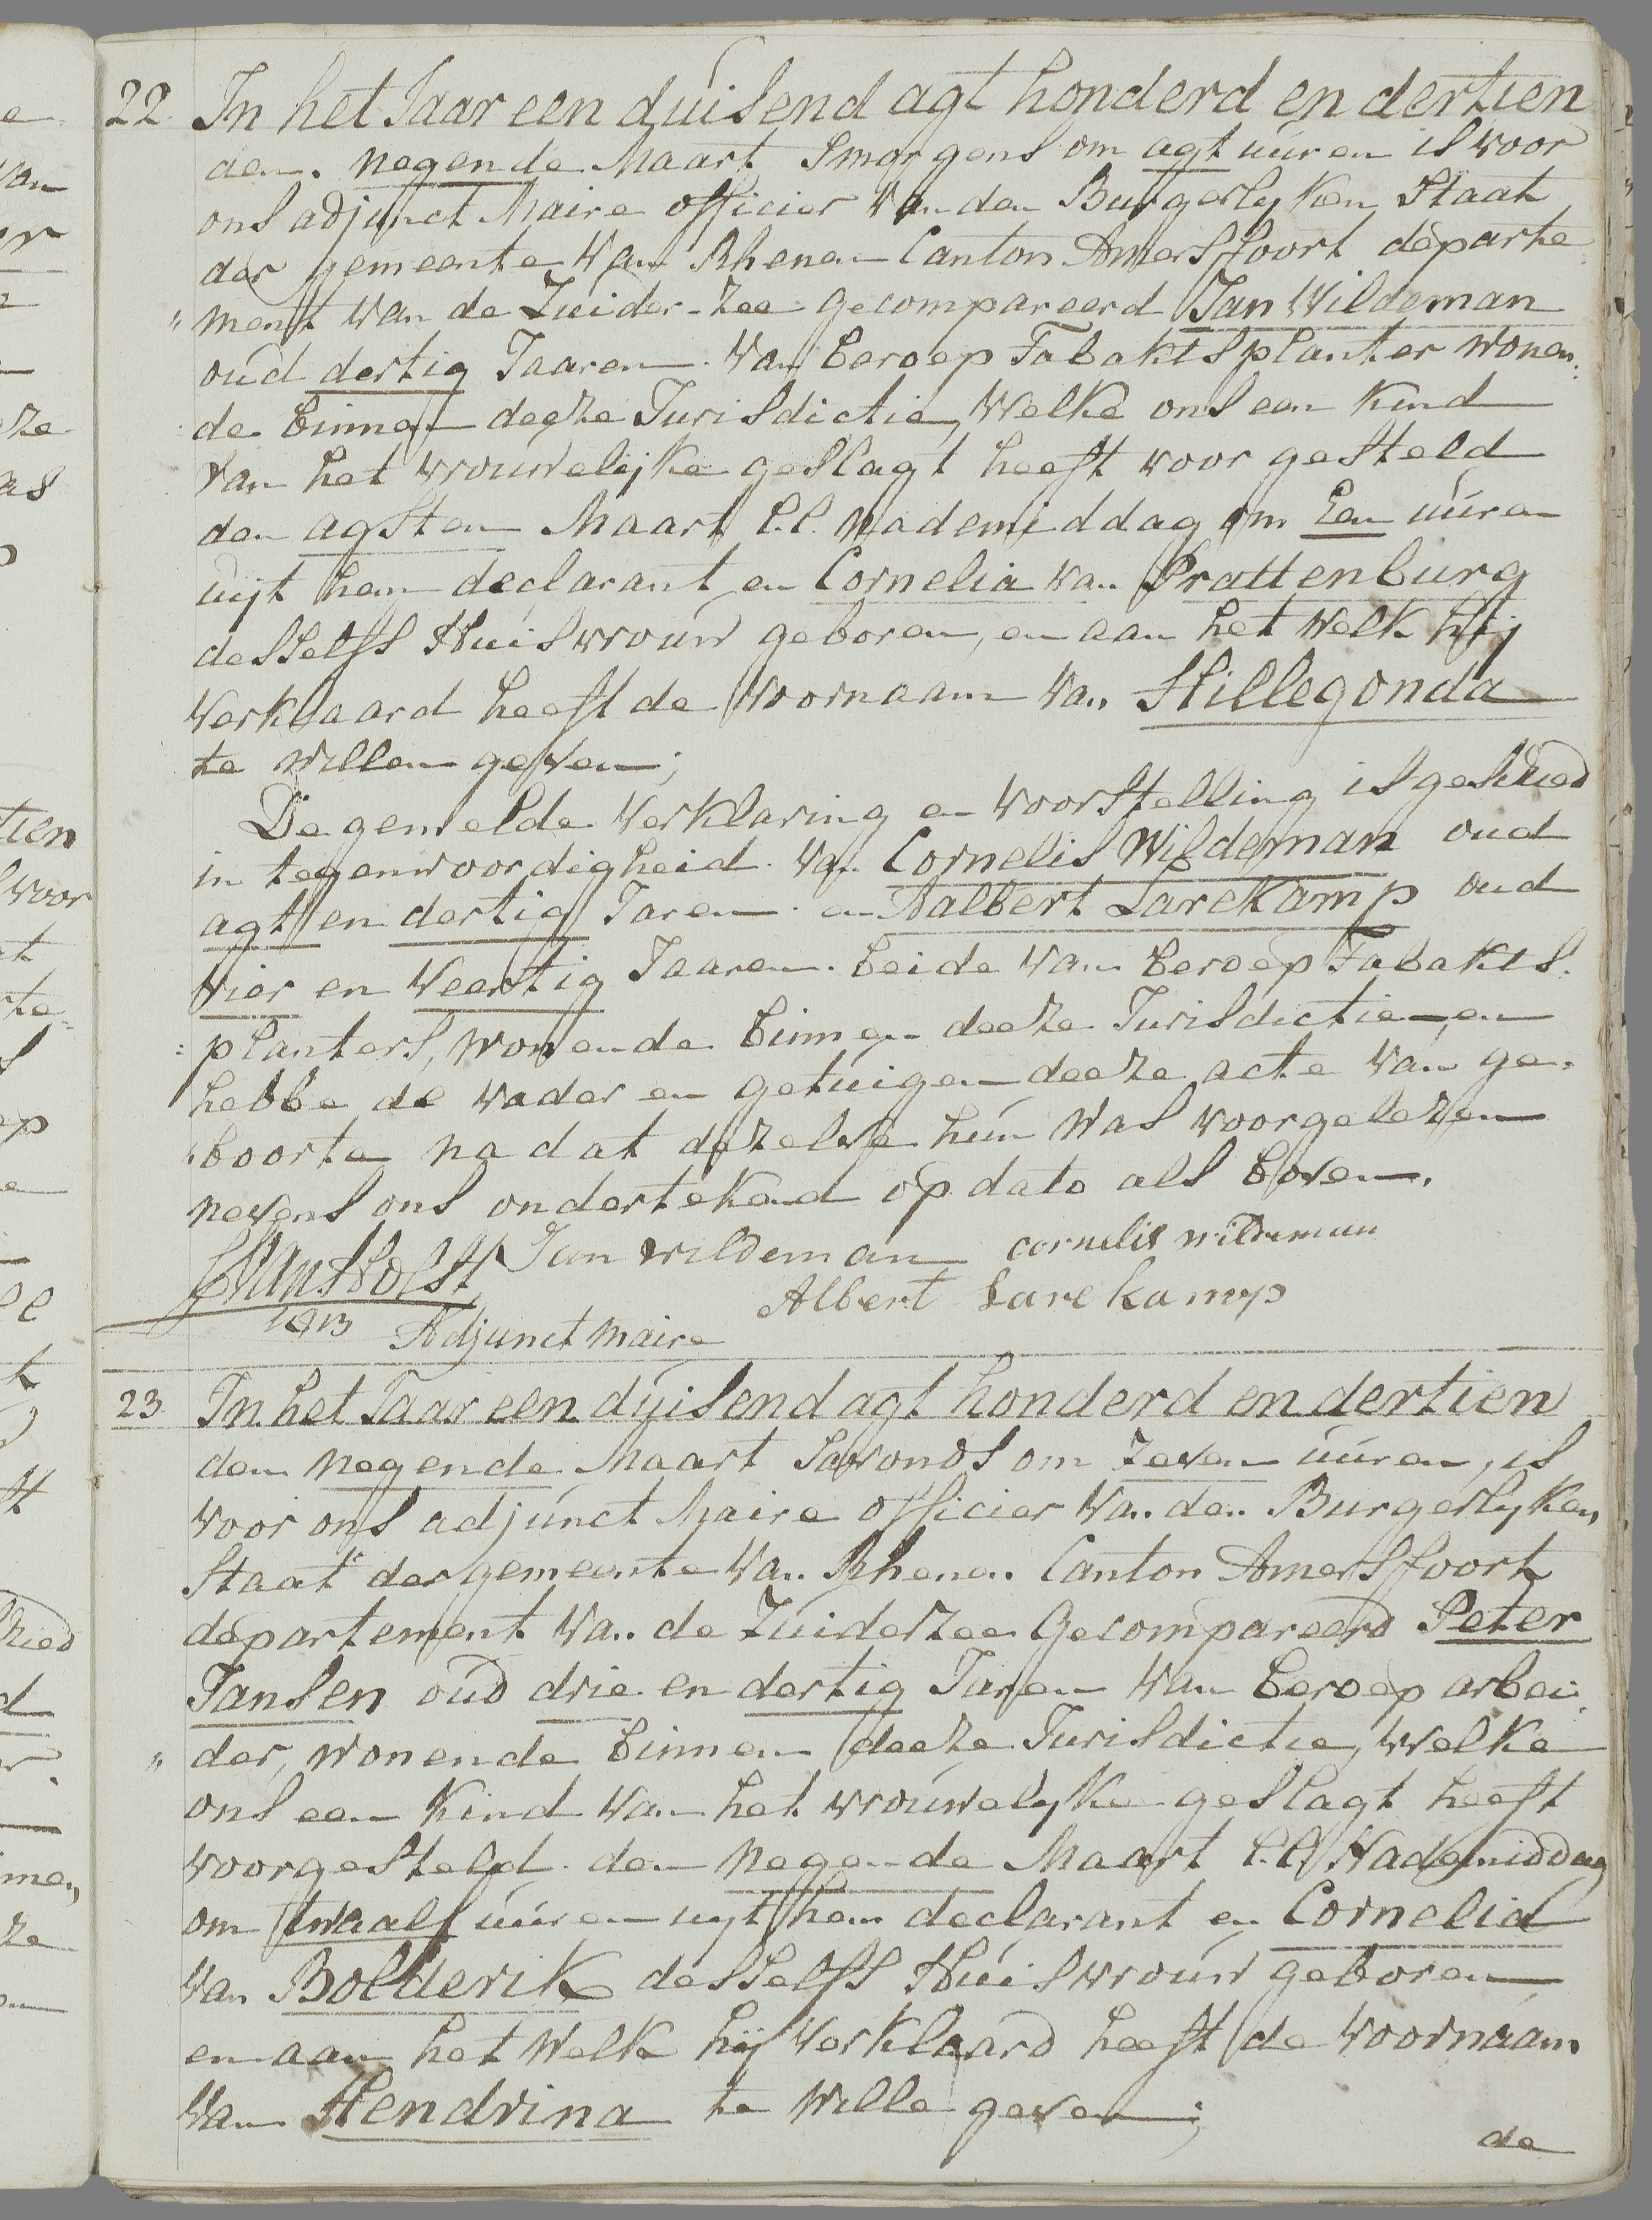 22. In het Jaar een duisend agt honderd en dertien
den negende Maart Smorgens om agt uúren is voor
ons adjunct Maire officier van den Burgerlyken Staat
der gemeente van Rhenen Canton Amersffoort departe=
"ment van de Zuider-Zee gecompareerd Jan Wildeman
oud dertig Jaaren van beroep Tabakts planter wonen=
de binnen deeze Jurisdictie, Welke ons een kind
van het vrouwelijke geslagt heeft voor gesteld
den agsten Maart l.l. nademiddag om Een uúren
uijt hem declarant en Cornelia van Prattenburg
desselfs Huisvrouw geboren, en aan het welk hij
verklaard heeft de voornaam van Hillegonda
te willen geven;
De gemelde verklaring en voorstelling is geschied
in tegenwoordigheid van Cornelis Wildeman oud
agt en dertig Jaren en Aalbert Larekamp oud
vier en veertig Jaaren beide van beroep Tabakts=
=planters, wonende binnen deeze Jurisdictie, en
hebbe de vader en getuigen deeze acte van ge=
"boorte na dat dezelve hun was voorgelezen
nevens ons ondertekend op dato als boven.
Jan wildeman cornelis wildeman
Albert Larekamp
1813 Adjunct maire
23. In het Jaar een duisend agt honderd en dertien
den negende Maart Savonds om zeven uúren, is
voor ons adjúnct Maire officier van den Burgerlyken
Staat der gemeente van Rhenen Canton Amersffoort
département van de Zuiderzee Gecompareerd Peter
Jansen oud drie en dertig Jaren van beroep arbei=
"der, wonende binnen deeze Jurisdictie, welke
ons een kind van het vrouwelyke geslagt heeft
voorgesteld den negende Maart l.l. Nademiddag
om twaalf uúren uyt hem declarant en Cornelia
van Bolderik desselfs Huisvrouw geboren
en aan het welk hij verklaard heeft de voornaam
van Hendrina te wille geven;
de